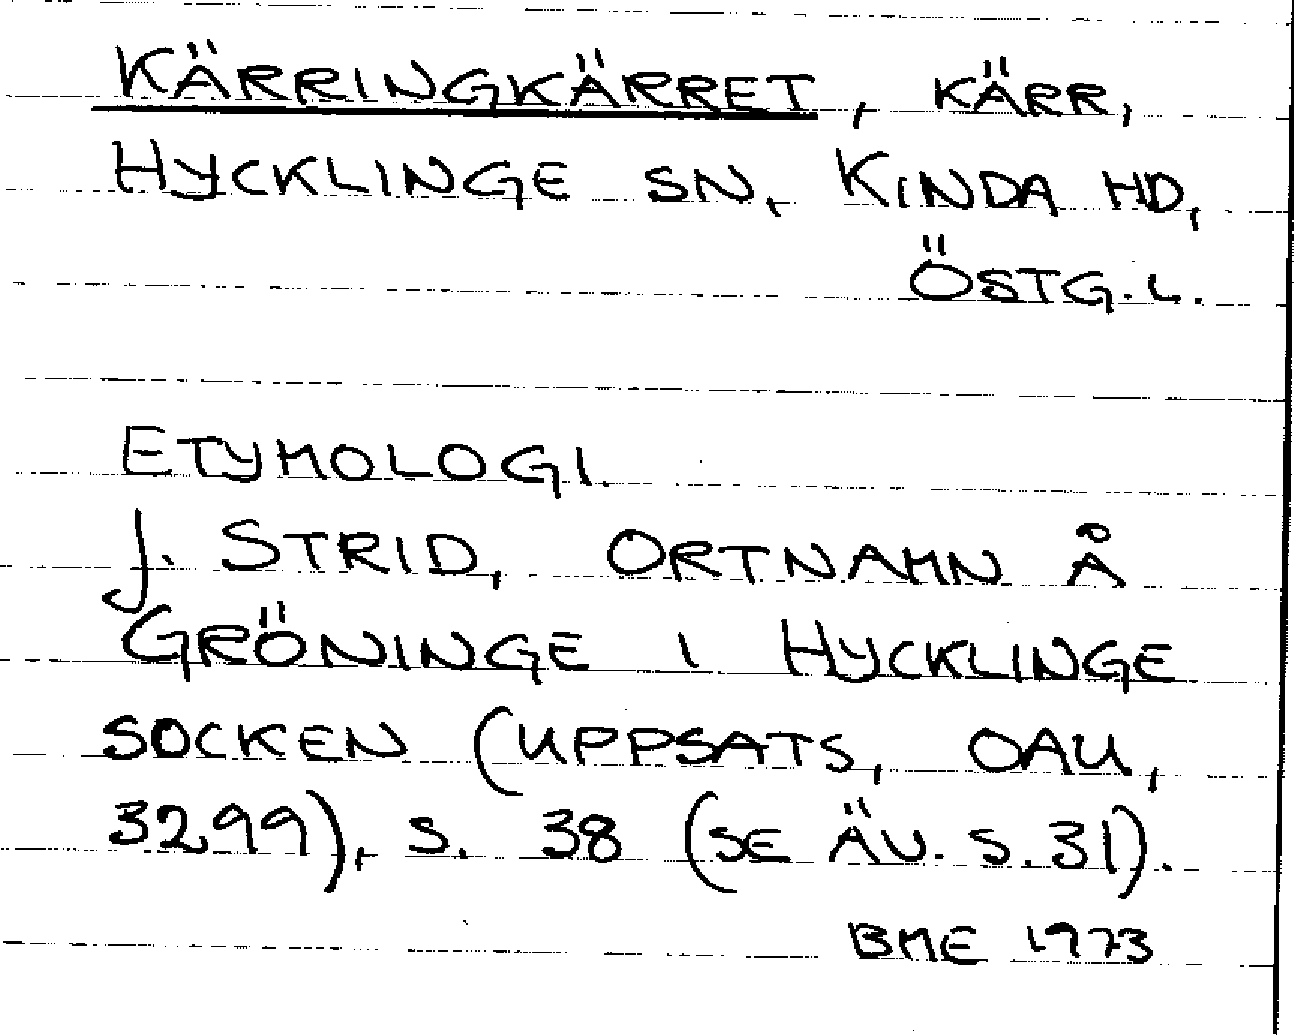 KÄRRINGKÄRRET, KÄRR,
HYCKLINGE SN, KINDA HD,
ÖSTG. L.
ETYMOLOGI.
J. STRID, ORTNAMN Å
GRÖNINGE I HYCKLINGE
SOCKEN (UPPSATS, OAU,
3299), S. 38 (SE ÄV. S. 31).
BME 1973